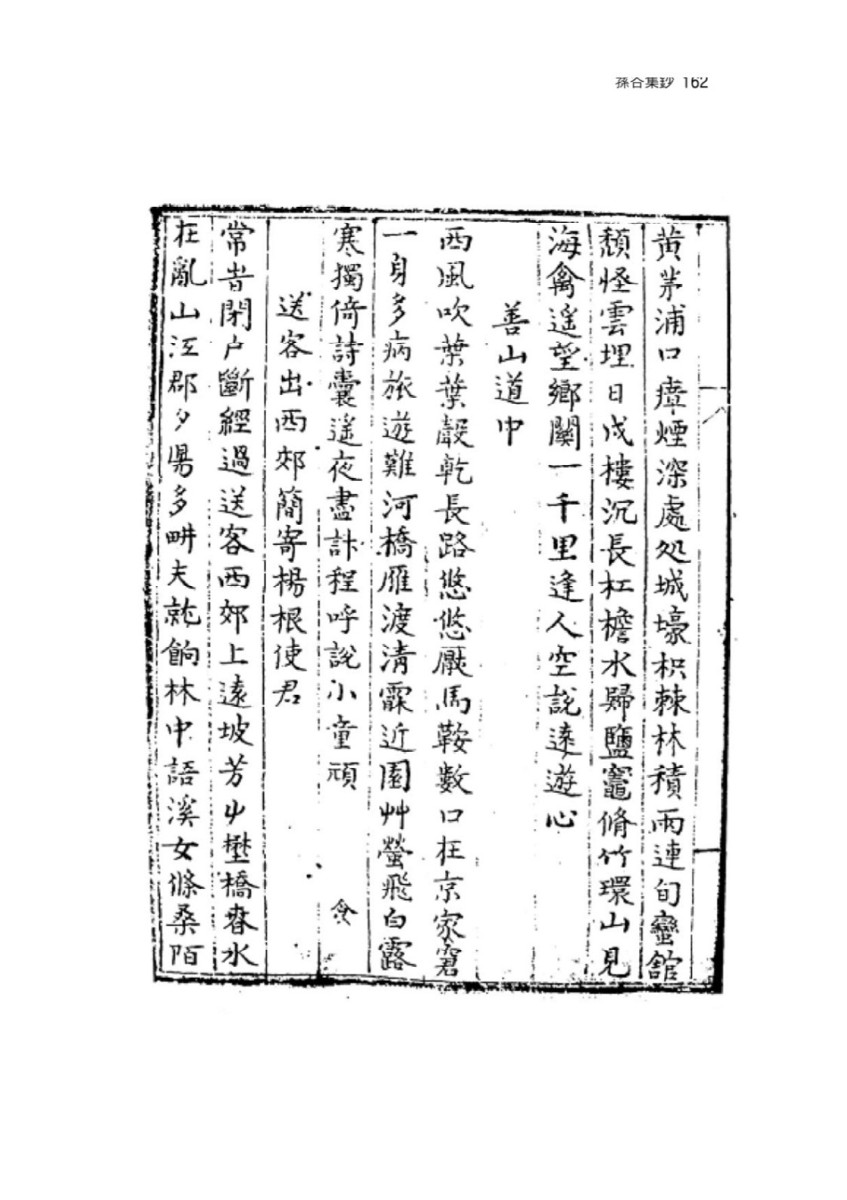 孫谷集鈔 162
黄茅浦口瘴煙深處処城壕枳棘林積雨連旬蠻舘
頹怪雲埋日戍樓沉長杠檐水歸鹽竈脩竹環山見
海禽遙望鄉關一千里逢人空說遠遊心
善山道中
西風吹葉葉聲乾長路悠悠厭馬鞍數口在京家窘
一身多病旅遊難河橋雁渡淸霜近園艸螢飛白露
寒獨倚詩囊遙夜盡計程呼說小童頑
食
送客出西郊簡寄楊根使君
常昔閉户斷經過送客西郊上遠坡芳屮壄橋春水
在亂山江郡夕

多畊夫就餉林中語溪女條桑陌